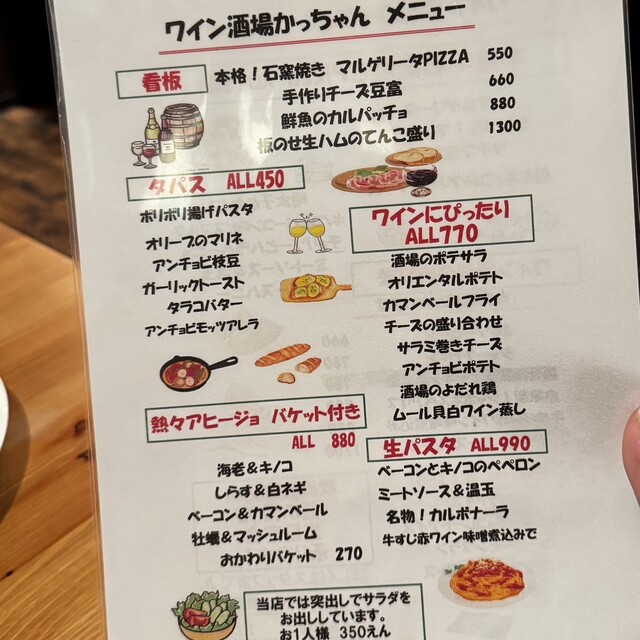 ワイン酒場かっちゃん メニュー
看板
本格！石窯焼き マルゲリータPIZZA 550
手作りチーズ豆富 660
鮮魚のカルパッチョ 880
板のせ生ハムのてんこ盛り 1300
タパス ALL450
ポリポリ揚げパスタ
オリーブのマリネ
アンチョビ枝豆
ガーリックトースト
タラコバター
アンチョビモッツアレラ
ワインにぴったり
ALL770
酒場のポテサラ
オリエンタルポテト
カマンベールフライ
チーズの盛り合わせ
サラミ巻きチーズ
アンチョビポテト
酒場のよだれ鶏
ムール貝白ワイン蒸し
熱々アヒージョ バケット付き
ALL 880
海老＆キノコ
しらす＆白ネギ
ベーコン＆カマンベール
牡蠣＆マッシュルーム
おかわりバケット 270
生パスタ ALL990
ベーコンとキノコのペペロン
ミートソース＆温玉
名物！カルボナーラ
牛すじ赤ワイン味噌煮込みで
当店では突出しでサラダを
お出ししています。
お1人様 350えん